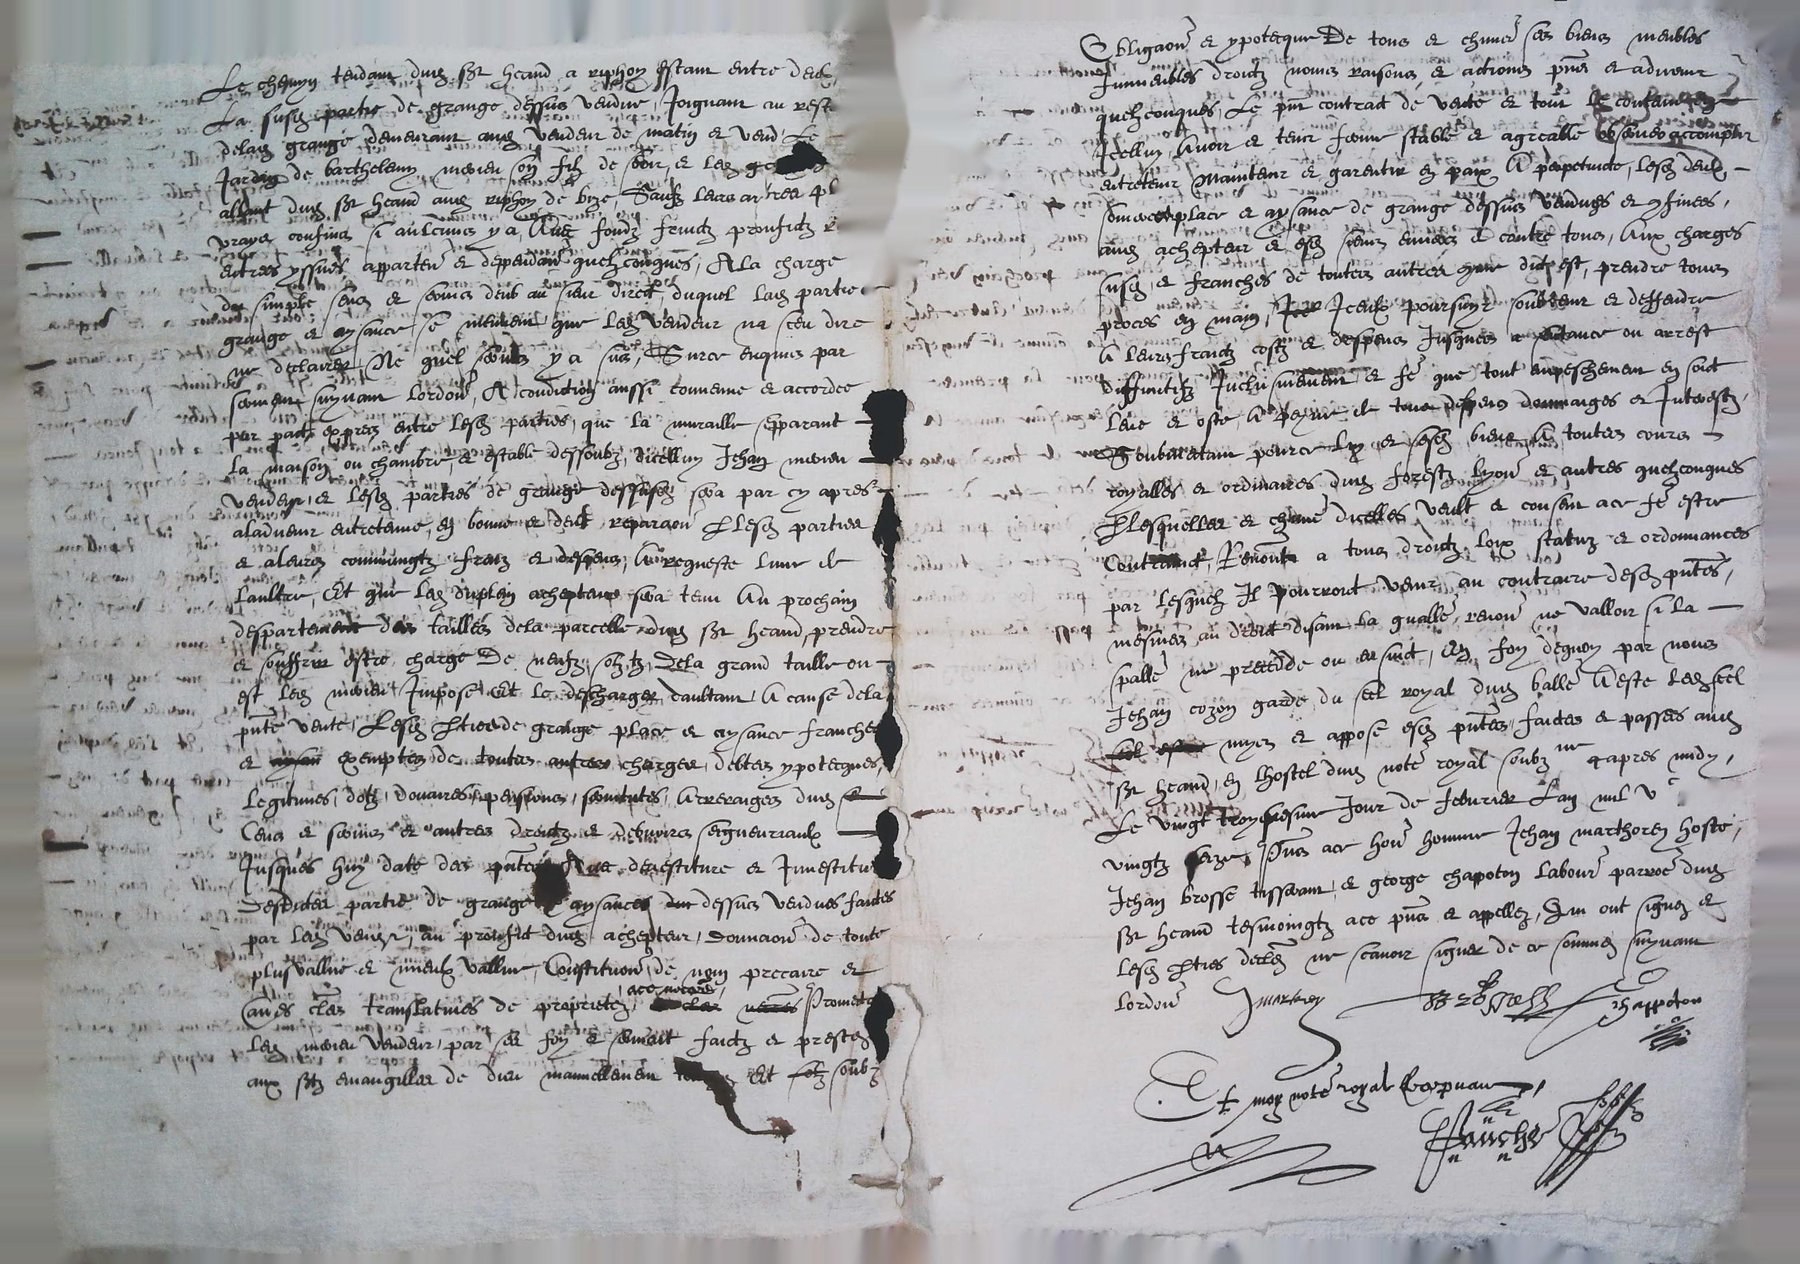 Le chemyn tendant dud. St heand a riphoy estant entre deulx
La susd. partie de grange dessus vendue, Joignant au rest
delad. grange demeurant aud. vendeur de matin et vend Le
Jardin de barthelemy meorieu soy filz de soir, et led.
allant dud. St heand aud. riphoy de bize, Saufz leurs autres
vrayes confins s'aulcuns y a, Avec fondz fruictz proufictz
entrees yssues apparten et dependan quelzconques, A La charge
du simple cens et servis deub au sieur direct, duquel lad. partie
grange et aysance se meuvent que led. vendeur na sceu dire
ne declairer Ne quel servis y a sus, Surce enquis par
serment suyvant lordon, A condiction aussi convenue et accordee
par pact expres entre lesd. parties, que la muraille separant
La maison ou chambre, et estable dessoubz, dicelluy Jehan meorieu
vendeur, et lesd. parties de grange dessusd. sera par cy apres
aladvenir entretenue, en bonne et deue reparaon Desd. parties
et aleurs commungtz fraiz et despens, A la requeste lune de
laultre, Et que led. achepteur sera tenu Au prochain
despartement des tailles dela parcelle dud. St heand, prendre
et souffrir estre charge De neufz solz tz, dela grand taille ou
est led. meorieu Impose Et le descharger daultant, A cause dela
pnte vente, Lesd. parties de grange place et aysance franches
et exemptes de toutes autres charges, debtes ypotecques,
Legitimes, dotz, douaires, pensions, servitutes, Arreraiges dud.
Cens et servis et autres droictz et debvoirs seigneuriaulx
Jusques huy date des pntes Avec devestiture et Investiture
Desdictes partie de grange et aysances dessus vendues faictes
par led. vendeur, au prouffit dud. achepteur, donnaon de toute
plusvallue et mieulx vallue, Constitution de nom precaire et
aultres cles translatives de propriete, ace necessres Promect
Led. meorieu vendeur, par sa foy et serment faictz et prestez
aux St evangilles de dieu manuellement Et soubz
Obligaon et ypotecque De tous et chun ses biens meubles
Immeubles droictz noms raisons et actions pns et advenir
quelzconques, Le pnt contract de vente et tout le contenu en
Icelluy, Avoir et tenir ferme stable et agreable observer accomplir
entretenir Maintenir et garentir en paix A perpetuite, Lesd. deulx
place et aysance de grange dessus vendues et confines,
aud. achepteur et esd. siens envers et contre tous, Aux charges
susd. et franches de toutes autres que dict est, prendre tous
proces en main, Iceulx poursuyr soubstenir et deffendre
A leurs fraictz costz et despens Jusques a sentance ou arrest
diffinitifz Inclusivement et fe que tout empeschement en soict
leve et oste, A peyne de tous despens dommaiges et Interestz,
Soubmectant pource luy et sesd. biens A toutes cours
royalles et ordinaires dud. forestz lyon et autres quelzconques
Desquelles et chune dicelles veult et consent ace fe estre
Contrainct, Renoncte a tous droictz loix statuz et ordonnances
par lesquelz Il pourroit venir au contraire desd. pntes,
mesmes au droict disant la gnalle, renon ne valloir si la
spalle ne precede ou ensuict, En foy dequoy par nous
Jehan cozon garde du seel royal dud. balle A este led. seel
mys et appose esd. pntes, faictes et passees aud.
St heand, en lhostel dud. note royal soubzne apres midy,
Le vingt troysiesme Jour de febvrier Lan mil vc
vingtz seize, Pns ace hon homme Jehan marthorey hoste,
Jehan brosse tisserant, et george chapoton labour parroe dud.
St heand tesmoingtz ace pns et appellez, Qui ont signez et
Lesd. pties declere ne scavoir signer de ce sommes suyvant
Lordon
J martorey Brosse Chappoton
Et moy note royal Recepvant